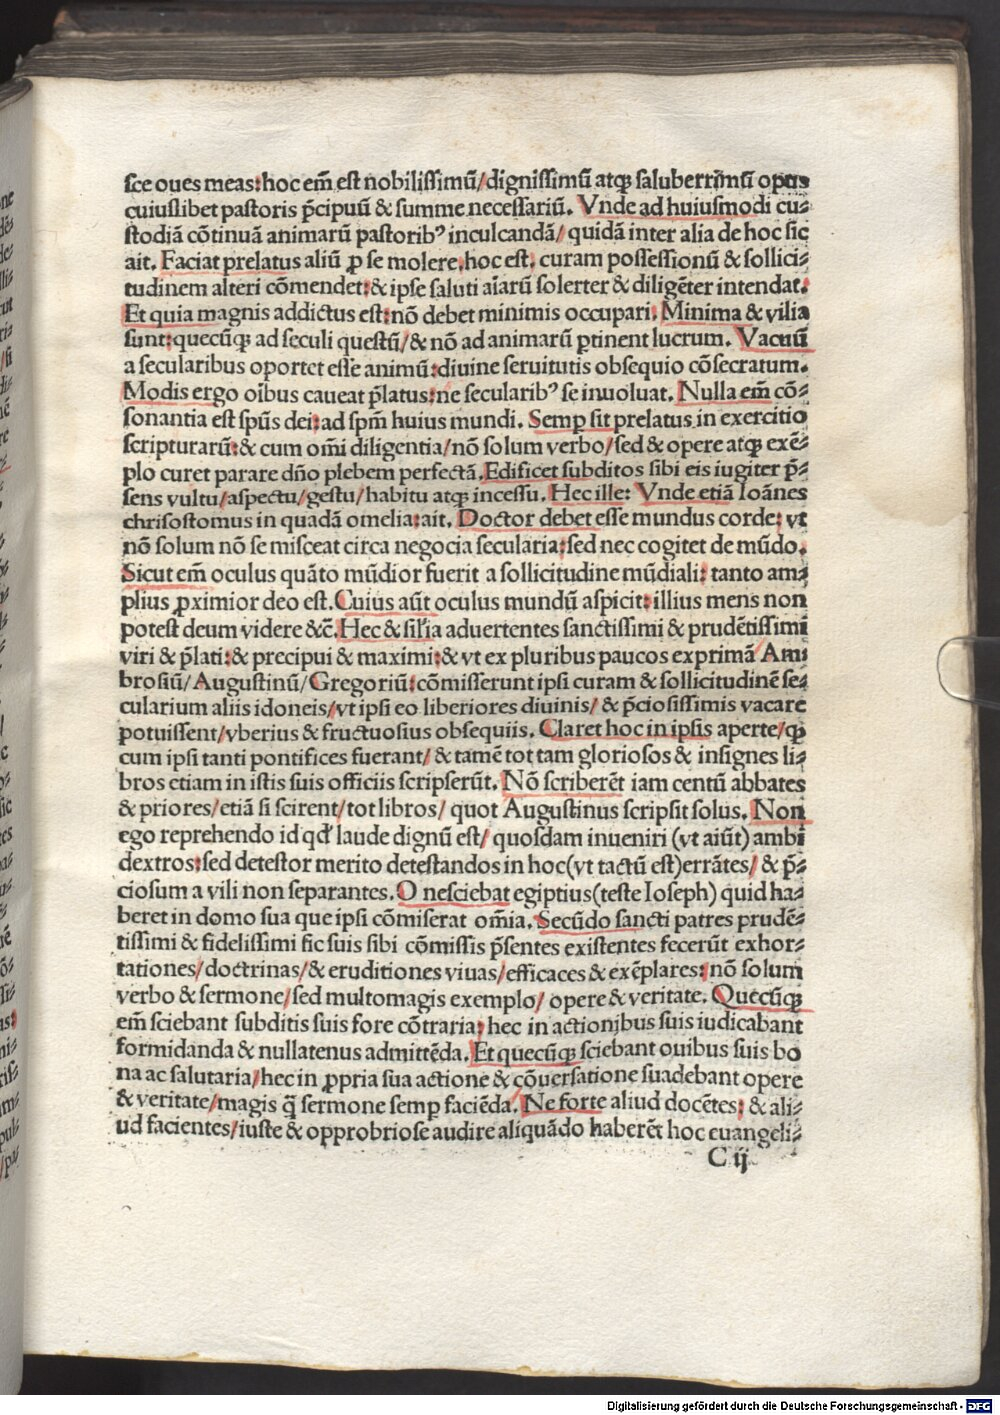 sce oues meas: hoc em̄ est nobilissimū/ dignissimū atqꝫ saluberrimū opus
cuiuslibet pastoris p̄cipuū & summe necessariū. Vnde ad huiusmodi cu⸗
stodiā cōtinuā animarū pastoribꝰ inculcandā/ quidā inter alia de hoc sic
ait. Faciat prelatus aliū ꝓ se molere, hoc est: curam possessionū & sollici⸗
tudinem alteri cōmendet: & ipse saluti aīarū solerter & diligēter intendat.
Et quia magnis addictus est: nō debet minimis occupari. Minima & vilia
sunt: quecūqꝫ ad seculi questū/ & nō ad animarū ꝑtinent lucrum. Vacuū
a secularibus oportet esse animū: diuine seruitutis obsequio cōsecratum.
Modis ergo oībus caueat p̄latus: ne secularibꝰ se inuoluat. Nulla em̄ cō⸗
sonantia est spūs dei: ad spm̄ huius mundi. Semꝑ sit prelatus in exercitio
scripturarū: & cum omī diligentia/ nō solum verbo/ sed & opere atqꝫ exē⸗
plo curet parare dño plebem perfectā. Edificet subditos sibi eis iugiter p̄⸗
sens vultu/ aspectu/ gestu/ habitu atqꝫ incessu. Hec ille: Vnde etiā Ioānes
chrisostomus in quadā omelia: ait. Doctor debet esse mundus corde: vt
nō solum nō se misceat circa negocia secularia: sed nec cogitet de mūdo.
Sicut em̄ oculus quāto mūdior fuerit a sollicitudine mūdiali: tanto am⸗
plius ꝓximior deo est. Cuius aūt oculus mundū aspicit: illius mens non
potest deum videre &c̄. Hec & sil̄ia aduertentes sanctissimi & prudētissimi
viri & p̄lati: & precipui & maximi: & vt ex pluribus paucos exprimā Am
brosiū/ Augustinū/ Gregoriū: cōmisserunt ipsi curam & sollicitudinē se⸗
cularium aliis idoneis/ vt ipsi eo liberiores diuinis/ & p̄ciosissimis vacare
potuissent/ vberius & fructuosius obsequiis. Claret hoc in ipsis aperte/ qꝫ
cum ipsi tanti pontifices fuerant/ & tamē tot tam gloriosos & insignes li⸗
bros etiam in istis suis officiis scripserūt. Nō scriberēt iam centū abbates
& priores/ etiā si scirent/ tot libros/ quot Augustinus scripsit solus. Non
ego reprehendo id qd̓ laude dignū est/ quosdam inueniri (vt aiūt) ambi
dextros: sed detestor merito detestandos in hoc (vt tactū est) errātes/ & p̄⸗
ciosum a vili non separantes. O nesciebat egiptius (teste Ioseph) quid ha⸗
beret in domo sua que ipsi cōmiserat om̄ia. Secūdo sancti patres prudē⸗
tissimi & fidelissimi sic suis sibi cōmissis p̄sentes existentes fecerūt exhor⸗
tationes/ doctrinas/ & eruditiones viuas/ efficaces & exēplares: nō solum
verbo & sermone/ sed multomagis exemplo/ opere & veritate. Quecūqꝫ
em̄ sciebant subditis suis fore cōtraria: hec in actionibus suis iudicabant
formidanda & nullatenus admittēda. Et quecūqꝫ sciebant ouibus suis bo
na ac salutaria/ hec in ꝓpria sua actione & cōuersatione suadebant opere
& veritate/ magis q̄ sermone semꝑ faciēda. Ne forte aliud docētes: & ali⸗
ud facientes/ iuste & opprobriose audire aliquādo haberēt hoc euangeli⸗
C ij
Digitalisierung gefördert durch die Deutsche Forschungsgemeinschaft - DFG